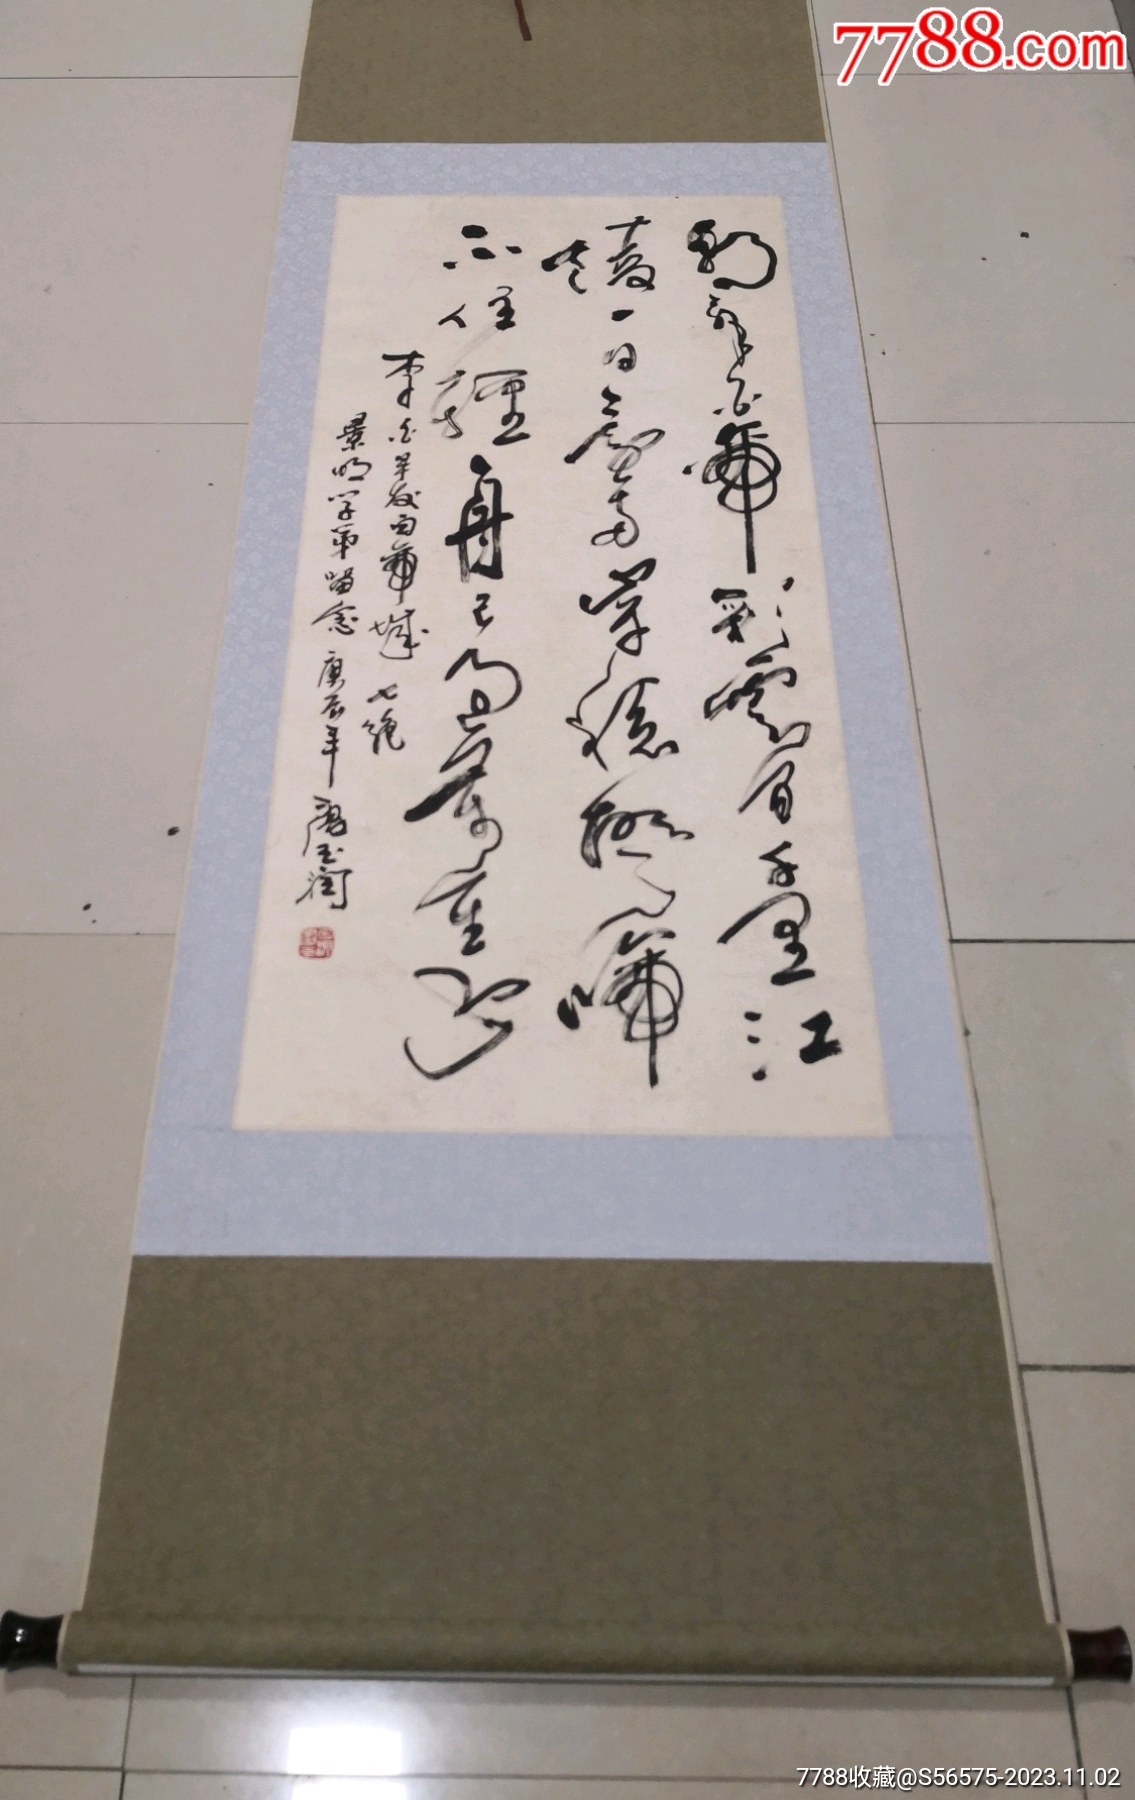 7788.com
朝辭白帝彩雲間千里江
陵一日還兩岸猿聲啼
不住輕舟已過萬重山
李白早發白帝城 七絕
景明學弟留念 庚辰年 唐玉潤
7788收藏@S56575-2023.11.02